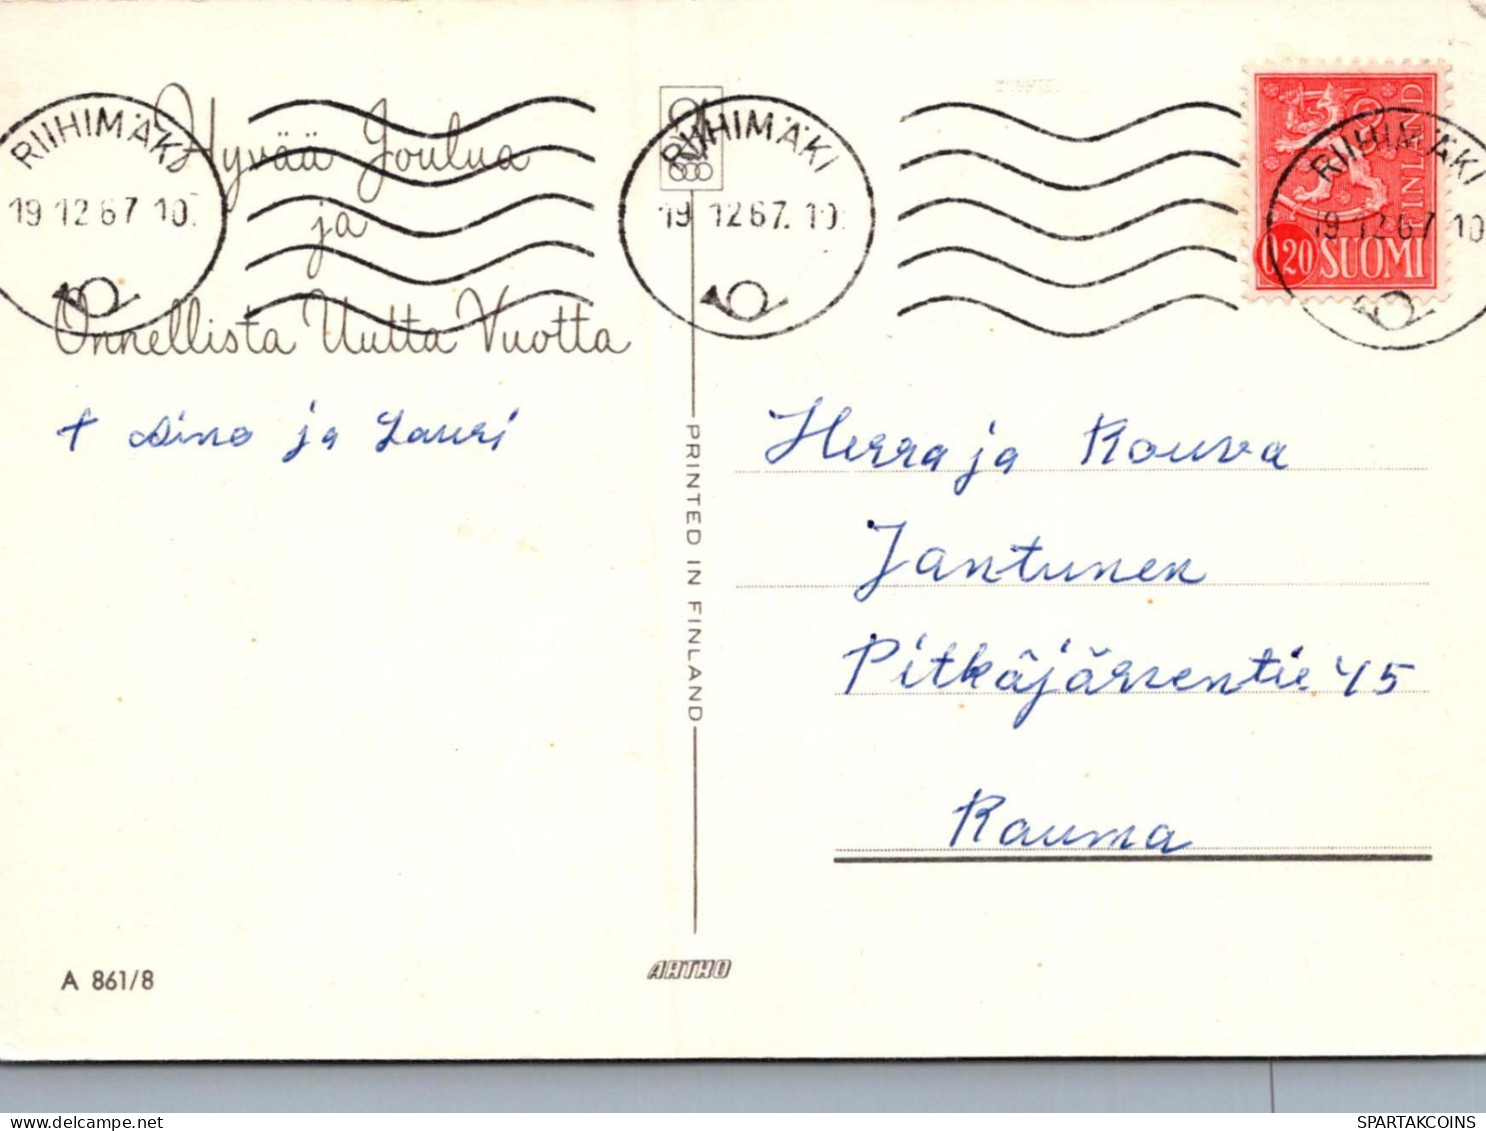 RIIHIMÄKI
19 12 67 10.
RIIHIMÄKI
19 12 67. 10
RIIHIMÄKI
19 12 67 10
FINLAND
0,20 SUOMI
Hyvää Joulua
ja
Onnellista Uutta Vuotta
t Aino ja Lauri
Herra ja Rouva
Jantunen
Pitkäjärventie 45
Rauma
PRINTED IN FINLAND
A 861/8
ARTKO
delcampe.net
SPARTAKCOINS